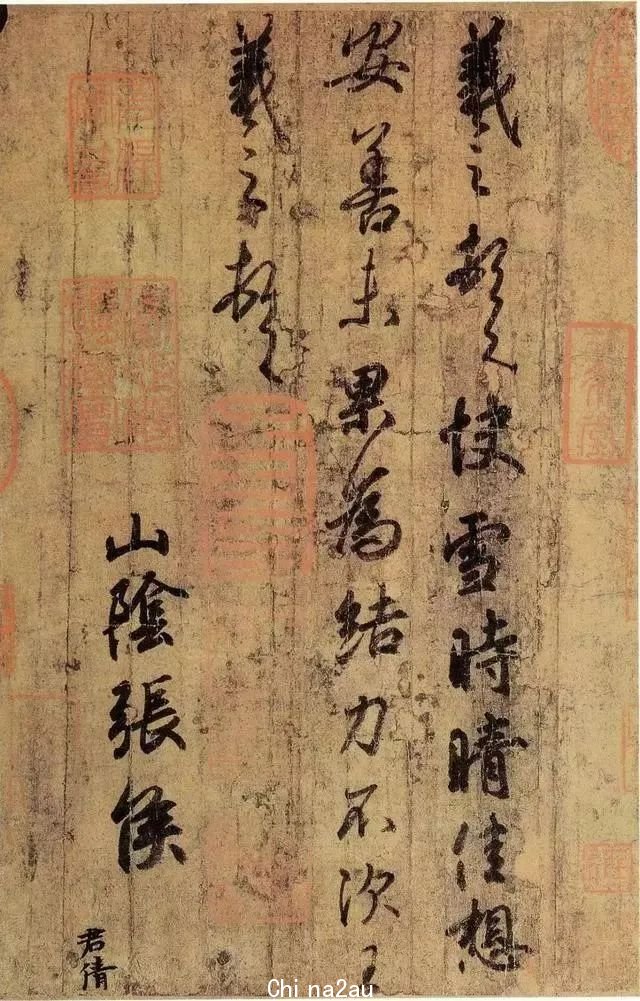 羲之頓首快雪時晴佳想
安善未果為結力不次王
羲之頓首
山陰張侯
君倩
Chi na2au